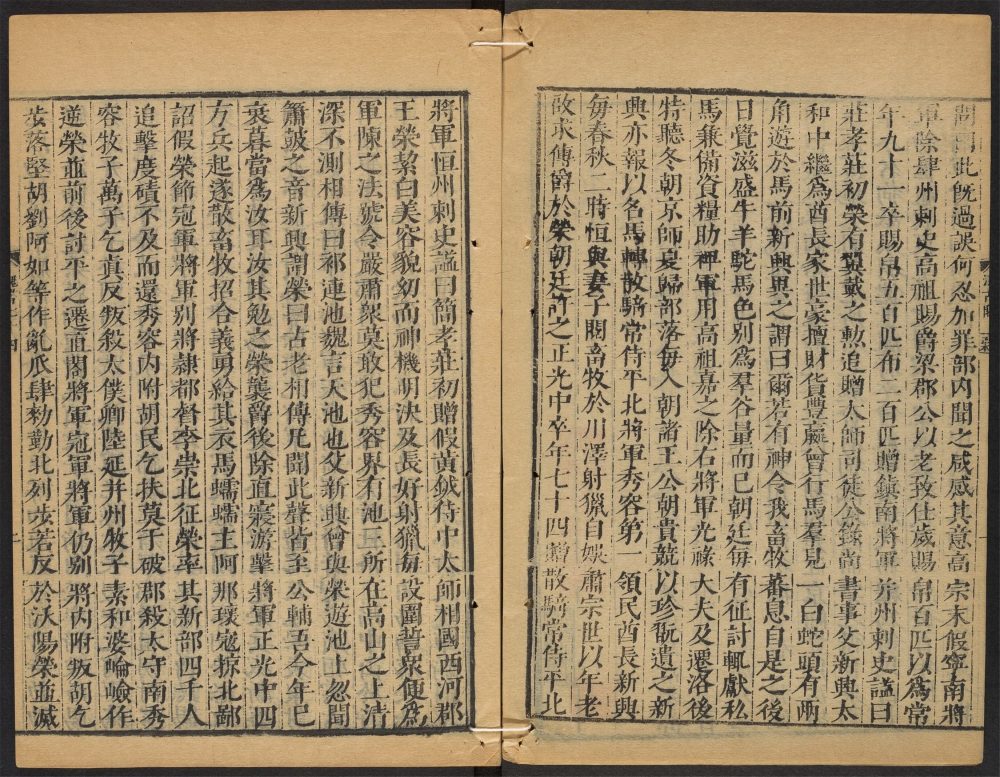 此既過誤何忍加罪部內聞之咸感其意高宗末假寧南將
軍除肆州刺史高祖賜爵梁郡公以老致仕歲賜帛百匹以為常
年九十一卒賜帛五百匹布二百匹贈鎮南將軍并州刺史諡曰
莊孝莊初榮有翼戴之勲追贈太師司徒公錄尚書事父新興太
和中繼為酋長家世豪擅財貨豐贏曾行馬羣見一白蛇頭有兩
角遊於馬前新興異之謂曰爾若有神令我畜牧蕃息自是之後
日覺滋盛牛羊駝馬色別為羣谷量而已朝廷每有征討輒獻私
馬兼備資糧助裨軍用高祖嘉之除右將軍光祿大夫及遷洛後
特聽冬朝京師夏歸部落每入朝諸王公朝貴競以珍翫遺之新
興亦報以名馬轉散騎常侍平北將軍秀容第一領民酋長新興
每春秋二時恒與妻子閱畜牧於川澤射獵自娛肅宗世以年老
啟求傳爵於榮朝廷許之正光中卒年七十四贈散騎常侍平北
將軍恒州刺史諡曰簡孝莊初贈假黃鉞侍中太師相國西河郡
王榮潔白美容貌幼而神機明決及長好射獵每設圍誓眾便為
軍陳之法號令嚴肅衆莫敢犯秀容界有池三所在高山之上清
深不測相傳曰祁連池魏言天池也父新興曾與榮遊池上忽聞
簫鼓之音新興謂榮曰古老相傳凡聞此聲皆至公輔吾今年已
衰暮當為汝耳汝其勉之榮襲爵後除直寢游擊將軍正光中四
方兵起遂散畜牧招合義勇給其衣馬蠕蠕主阿那瓌寇掠北鄙
詔假榮節冠軍將軍別將隸都督李崇北征榮率其新部四千人
追擊度磧不及而還秀容內附胡民乞扶莫于破郡殺太守南秀
容牧子萬子乞真反叛殺太僕卿陸延并州牧子素和婆崘嶮作
逆榮並前後討平之遷直閤將軍冠軍將軍仍別將內附叛胡乞
步落堅胡劉阿如等作亂瓜肆勑勤北列步若反於沃陽榮並滅